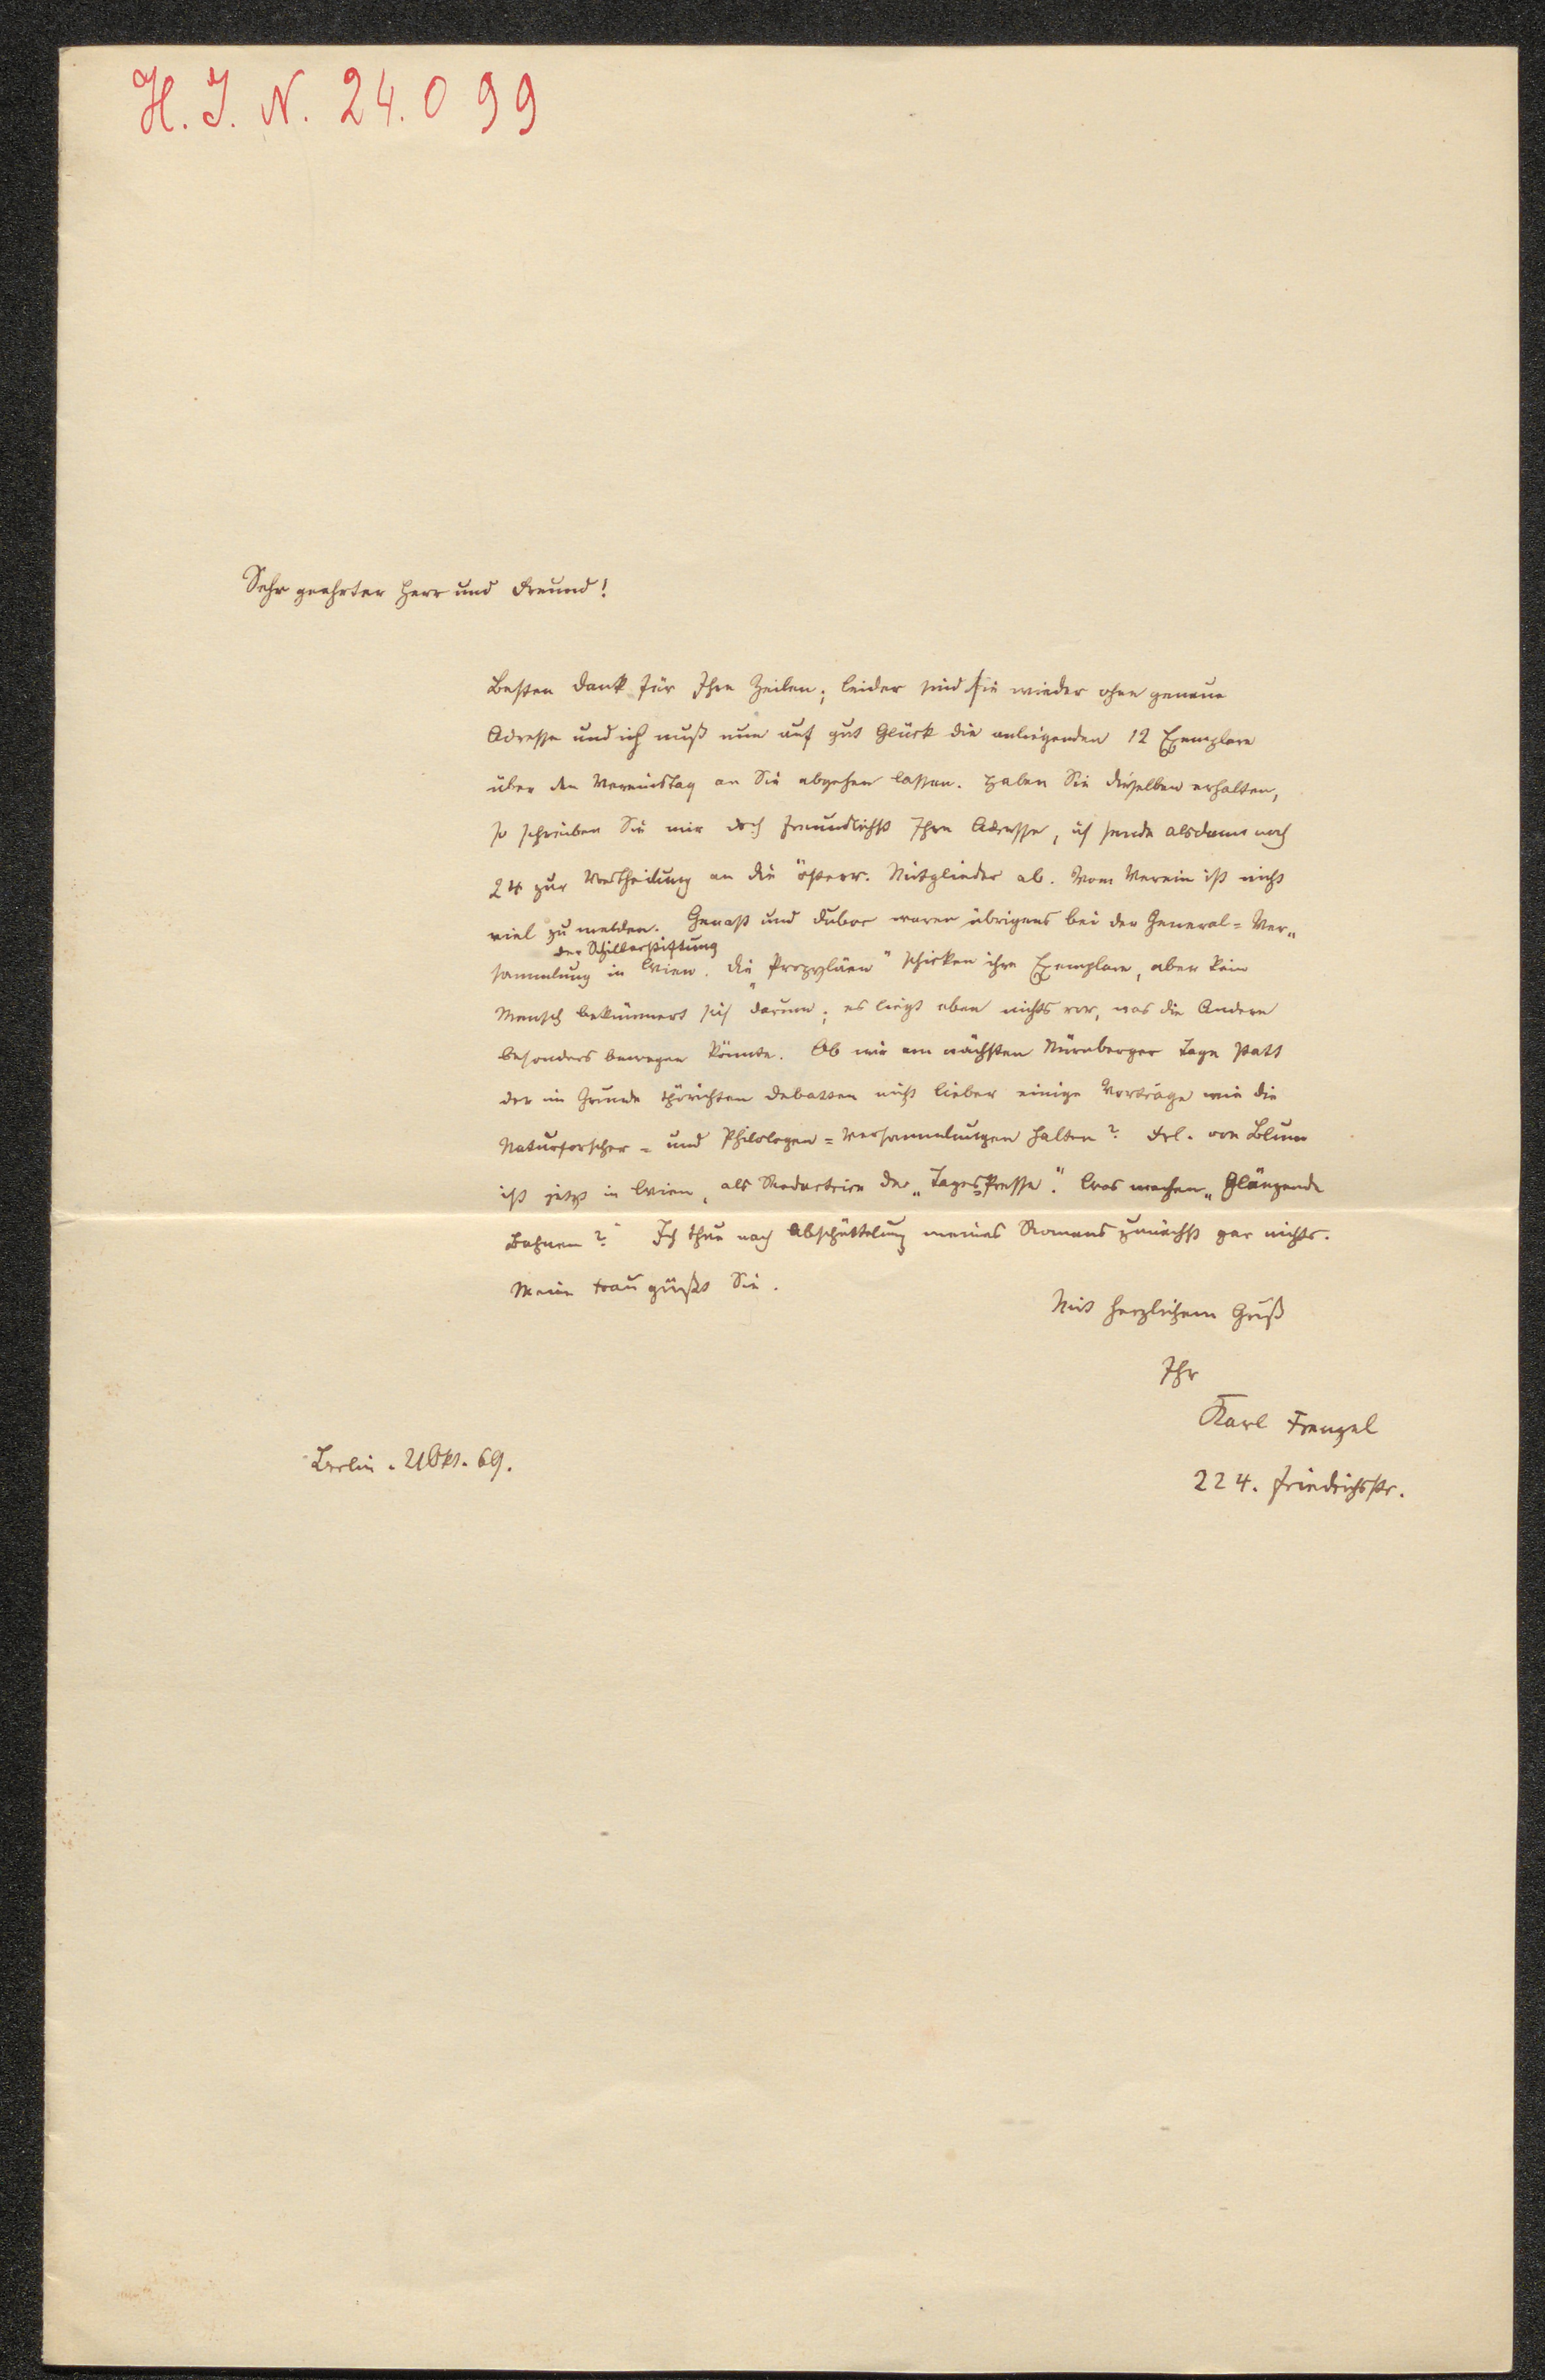 H. I. N. 24.099
Sehr geehrter Herr und Freund!
Besten Dank für Ihre Zeilen; leider sind sie wieder ohne genaue
Adresse und ich muß nun auf gut Glück die anliegenden 12 Exemplare
über den Vereinstag an Sie abgehen lassen. Haben Sie dieselben erhalten,
so schreiben Sie mir doch freundlichst Ihre Adresse, ich sende alsdann noch
24 zur Vertheilung an die österr. Mitglieder ab. Vom Verein ist nicht
viel zu melden. Genast und Duboc waren übrigens bei der General-Ver-
der Schillerstiftung
sammlung in Wien. Die „Propyläen" schicken ihre Exemplare, aber kein
Mensch bekümmert sich darum; es liegt eben nichts vor, was die Andern
besonders bewegen könnte. Ob wir am nächsten Nürnberger Tage statt
der im Grunde thörichten Debatten nicht lieber einige Vorträge wie die
Naturforscher- und Philologen-Versammlungen halten? Frl. von Blum
ist jetzt in Wien, als Redactrice der „Tages-Presse". Was machen „Glänzende
Bahnen?" Ich thue nach Abschüttelung meines Romans zunächst gar nichts.
Meine Frau grüßt Sie.
Mit herzlichem Gruß
Ihr
Karl Frenzel
Berlin. 21 Okt. 69.
224. Friedrichsstr.